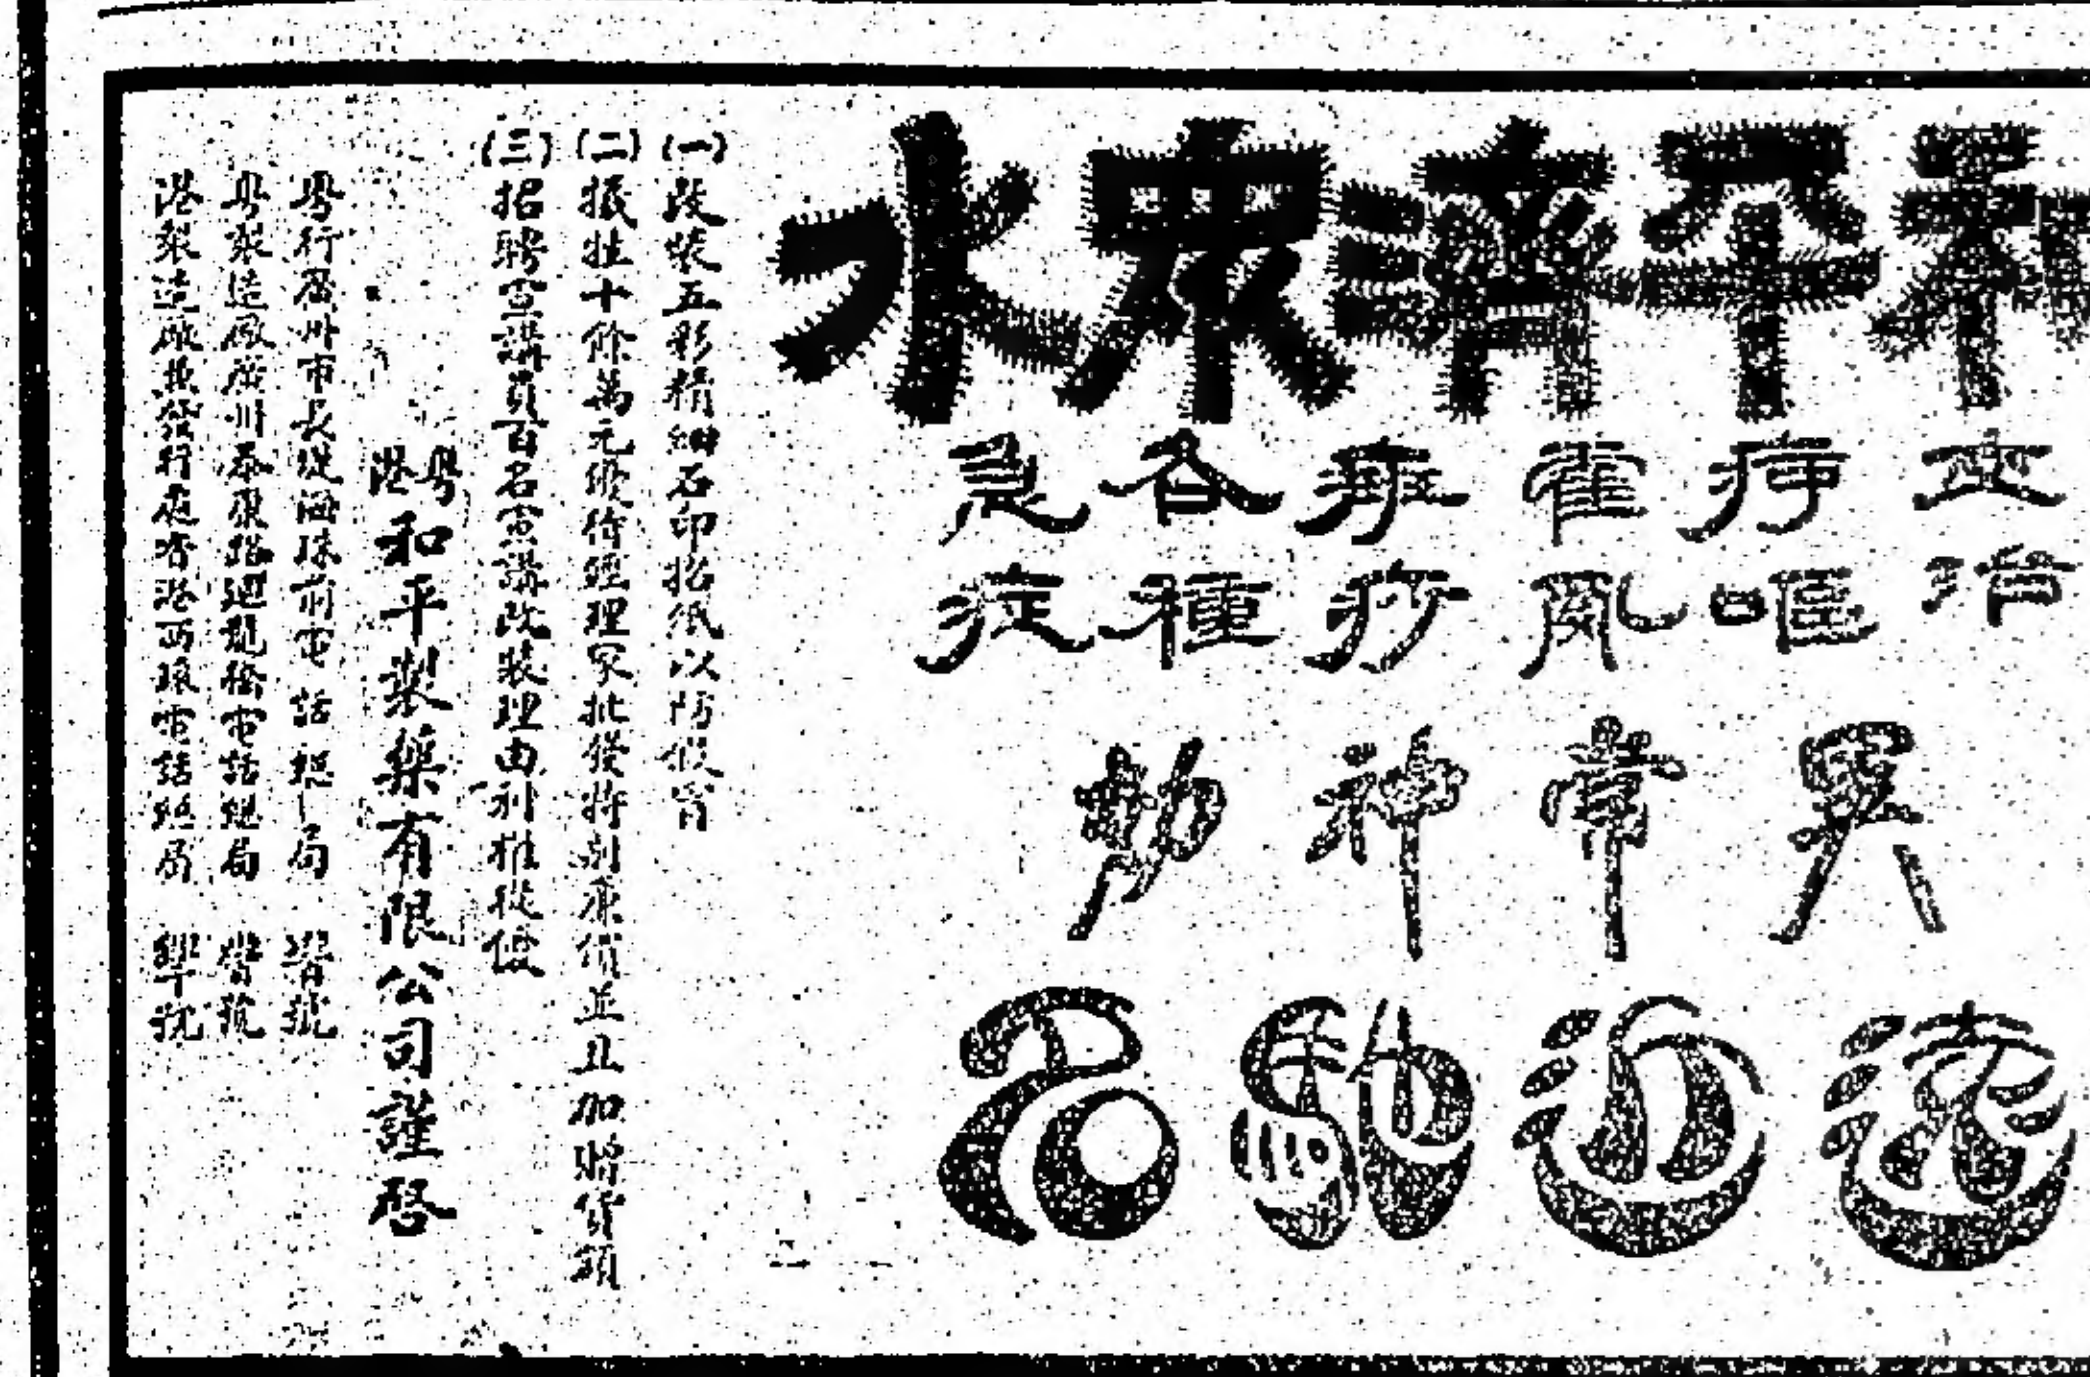 和平濟眾水
主治
嘔
霍
痧
各種
急症
異常神効
遠近馳名
(一)改裝五彩精細石印招紙以防假冒
(二)犧牲十餘萬元優待經理家批發特別廉價並且加贈貨額
(三)招聘宣講員百名宣講改裝理由利權從優
粵港和平製藥有限公司謹啓
粵行廣州市長堤海珠前電話總局 號
粵製造廠廣州泰康路迴龍電話總局 號
港製造廠兼發行處香港西環電話總局 號